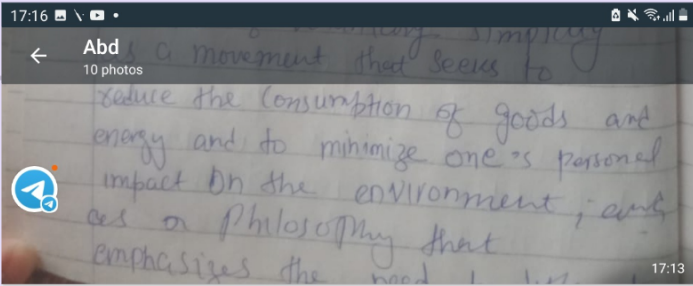 17:16
Abd
10 photos
simplicity
as a movement that seeks to
reduce the consumption of goods and
energy and to minimize one's personal
impact on the environment, and
as a philosophy that
emphasizes the need
17:13